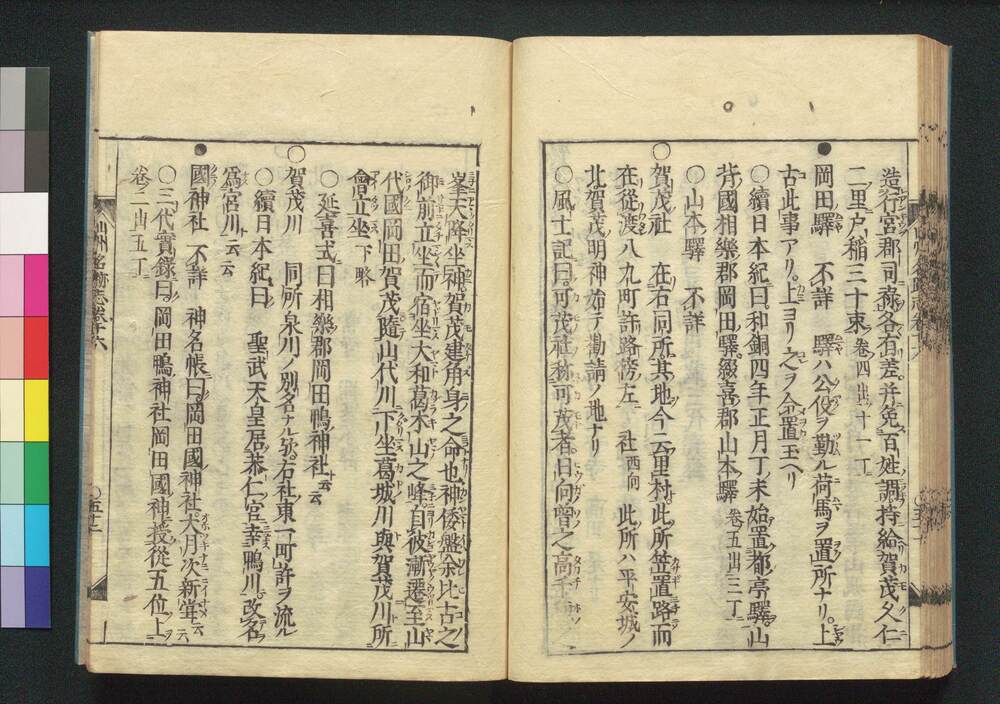 造行宮郡司祿各有差。并免百姓調特給賀茂久仁
二里戸稲三十束 卷四出十一丁
●岡田驛 不詳 驛ハ公役ヲ勤ル荷馬ヲ置所ナリ。上
古此事アリ。上ヨリ之ヲ命置玉ヘリ
○續日本紀曰。和銅四年正月丁未始置都亭驛。山
背國相樂郡岡田驛。綴喜郡山本驛 卷五出三丁
○山本驛 不詳
○賀茂社 在右同所其地今云里村。此所笠置路而
在從渡八九町許路傍左 社西向 此所ハ平安城ノ
北賀茂明神始テ勸請ノ地ナリ
○風土記曰。可茂社称可茂者。日向曽之高千
峯天降坐神賀茂建角身之命也神倭磐余比古之
御前立坐而宿坐大和葛木山之峰自彼漸遷至山
代國岡田賀茂隨山代川下坐葛城川與賀茂川所
會立坐 下略
○延喜式曰相樂郡岡田鴨神社云云
○賀茂川 同所泉川ノ別名ナル歟。右社東一町許ヲ流ル
○續日本紀曰 聖武天皇居恭仁宮幸鴨川改名
爲宮川云云
●國神社 不詳 神名帳曰岡田國神社。大月次新甞云云
○三代實錄曰。岡田鴨神社岡田國神授從五位上
卷二出五丁
山州名跡志卷十六
○五十二